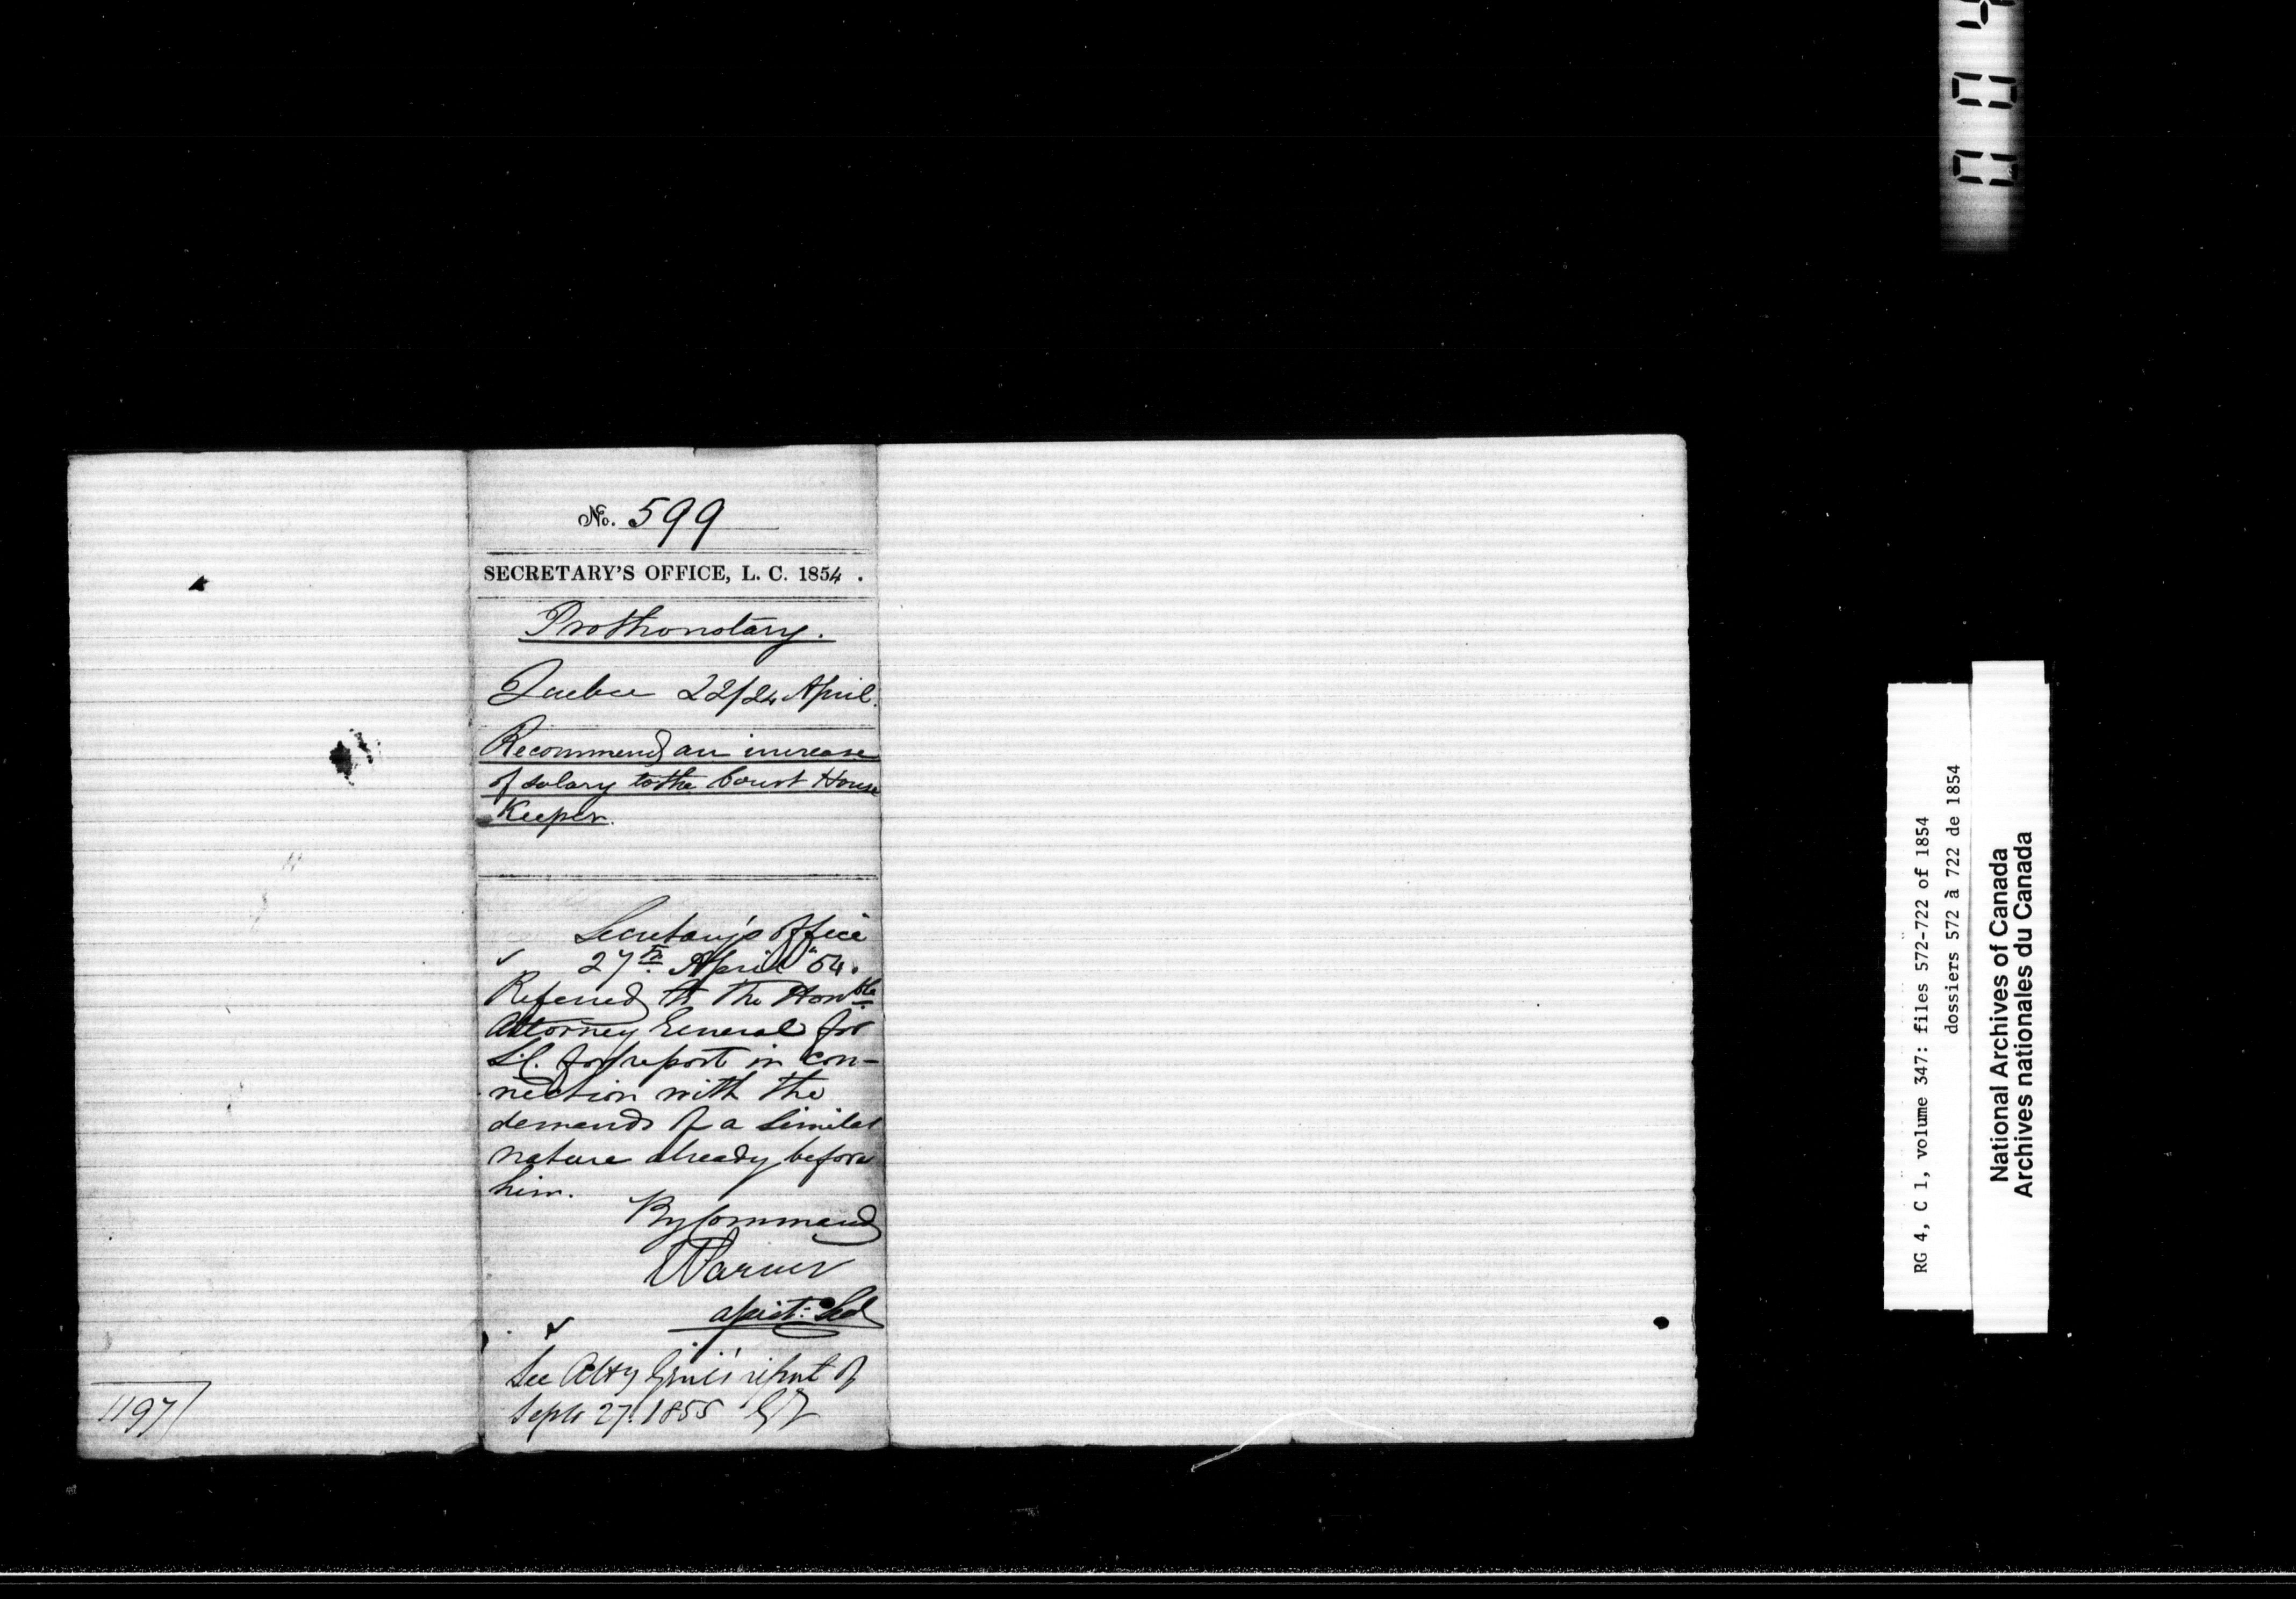 No. 599
SECRETARY'S OFFICE, L. C. 1854.
Prothonotary.
Quebec 22/24 April.
Recommends an increase
of salary to the Court House
Keeper.
Secretary's Office
27th April '54.
Referred to the Honble
Attorney General for
L.C. for report in con-
nection with the
demands of a similar
nature already before
him.
By Command
EParent
Assist: Sec
See Atty Genl's report of
Septr 27. 1855
1197
RG 4, C 1, volume 347: files 572-722 of 1854
dossiers 572 à 722 de 1854
National Archives of Canada
Archives nationales du Canada